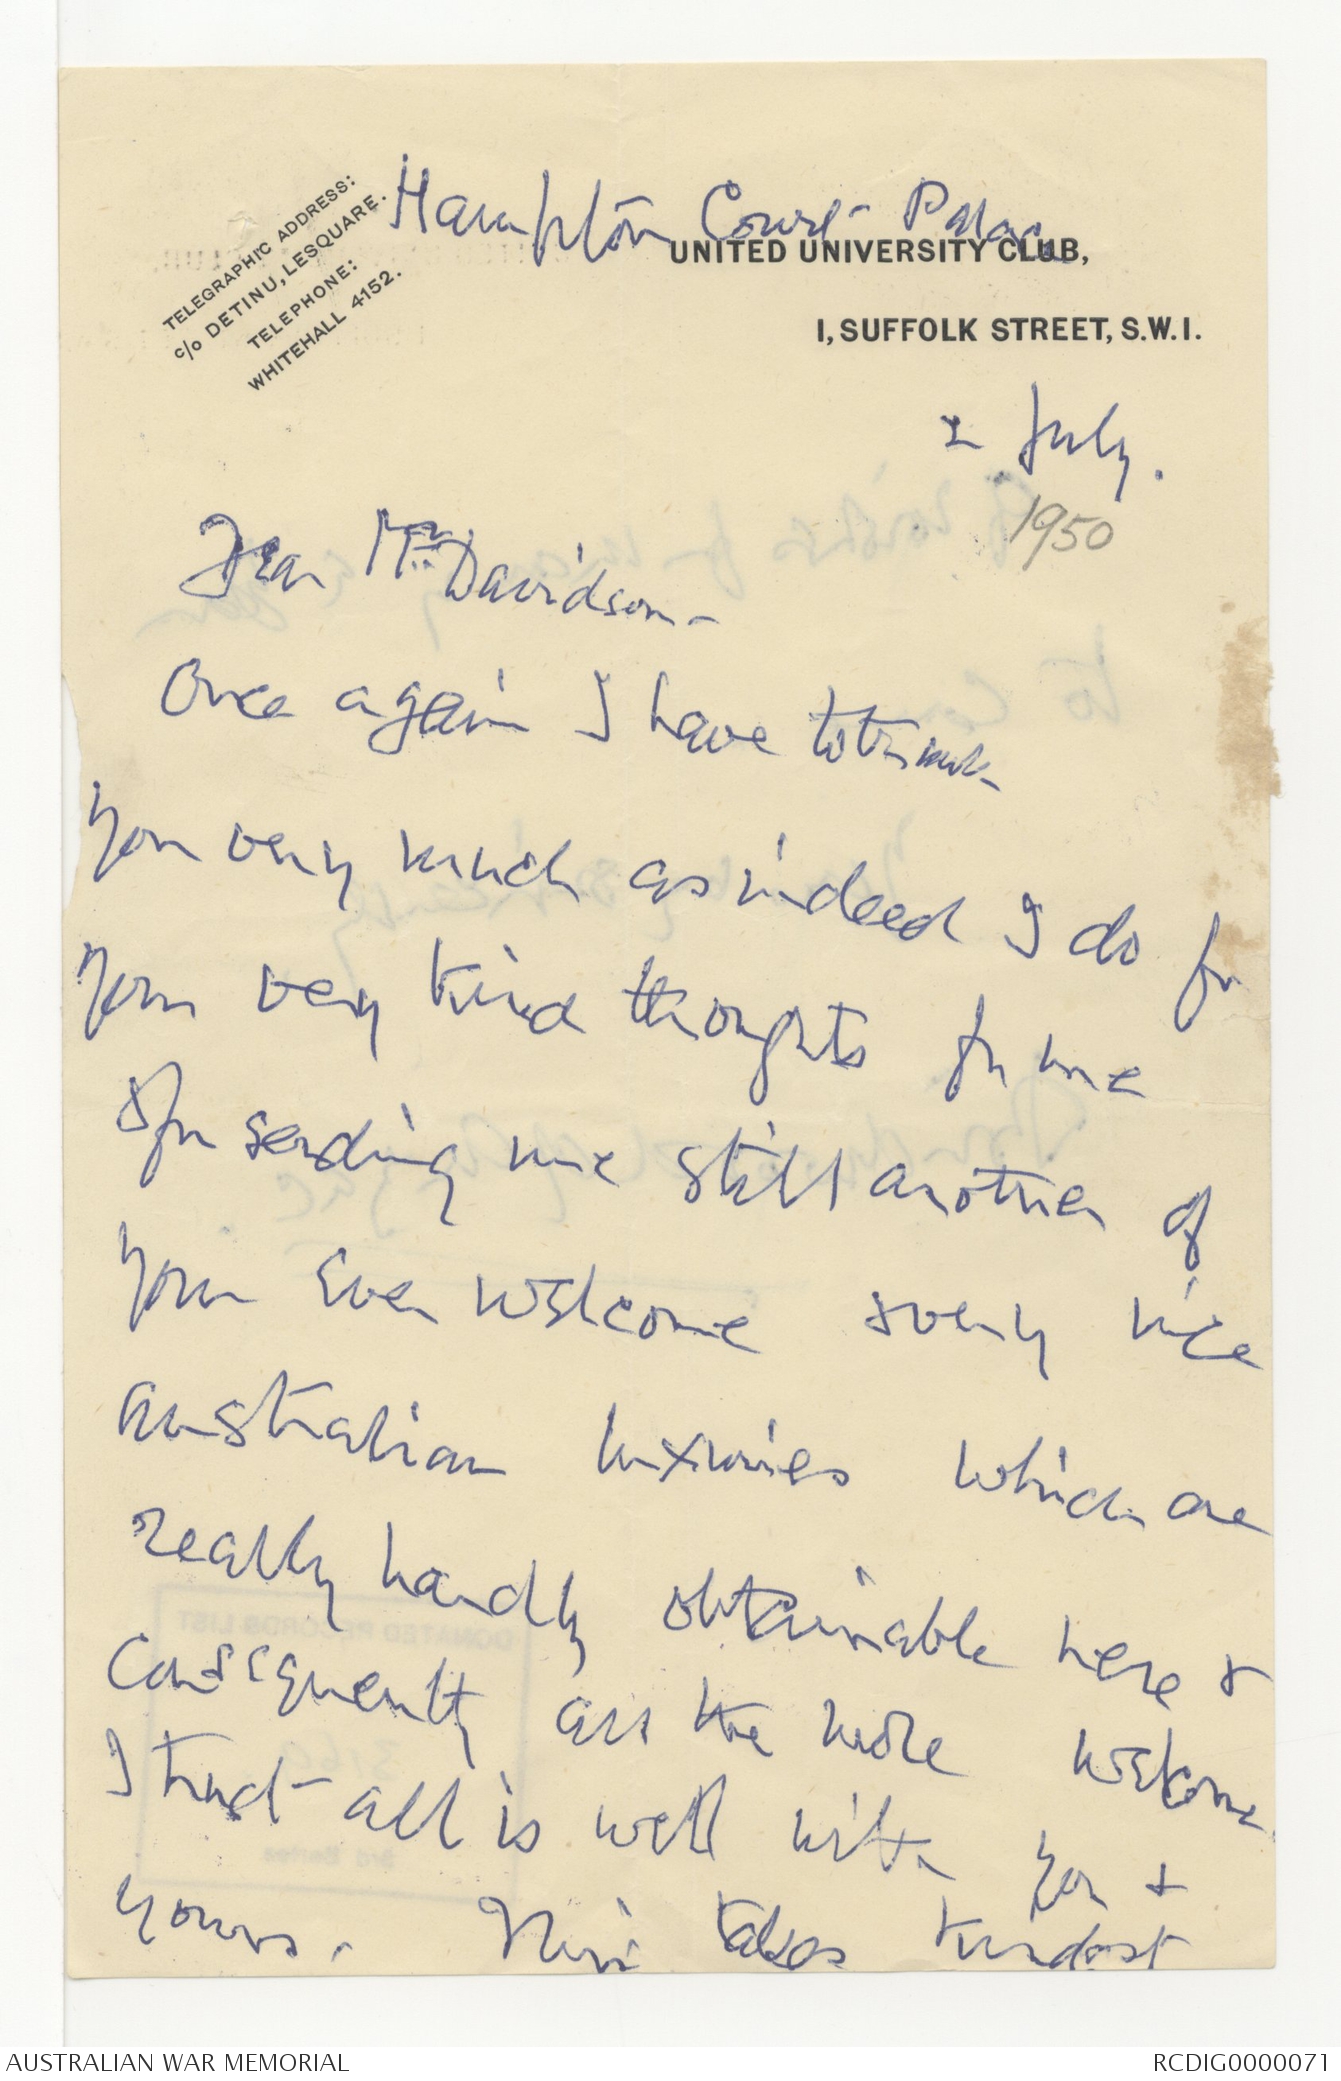 TELEGRAPHIC ADDRESS:
c/o DETINU, LESQUARE.
TELEPHONE:
WHITEHALL 4152.
Hampton Court Palace
UNITED UNIVERSITY CLUB,
1, SUFFOLK STREET, S.W.1.
2 July.
1950
Dear Mr Davidson -
Once again I have to thank
you very much as indeed I do for
your very kind thoughts for me
& for sending me still another of
your ever welcome & very nice
Australian luxuries which are
really hardly obtainable here &
consequently all the more welcome.
I trust all is well with you &
yours. takes kindest
AUSTRALIAN WAR MEMORIAL
RCDIG0000071